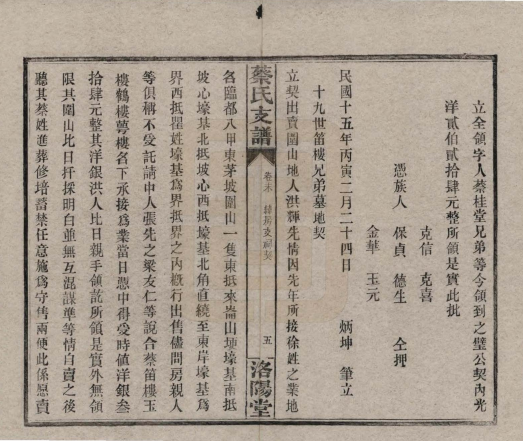 立全領字人蔡桂堂兄弟等今領到之璧公契內光
洋貳伯貳拾肆元整所領是實此批
克信 克喜
憑族人 保貞 德生 仝押
金華 玉元
民國十五年丙寅二月二十四日 炳坤 筆立
十九世笛樓兄弟墓地契
立契出賣圍山地人洪輝先情因先年所接徐姓之業地
蔡氏支譜
卷末
五
洛陽堂
名臨都八甲東茅坡圍山一隻東抵來崙山埂壕基南抵
坡心壕基北抵坡心西抵壕基北角直繞至東岸壕基為
界西抵瞿姓壕基為界抵界之內概行出售儘問房親人
等俱稱不受託請中人張先之梁友仁等說合蔡笛樓玉
樓鶴樓萼樓名下承接為業當日憑中得受時值洋銀叁
拾肆元整其洋銀洪人比日親手領訖所領是實外無領
限其圍山比日扦採明白並無互混謀準等情自賣之後
聽其蔡姓進葬修培蓄禁任意施為守售兩便此係愿賣